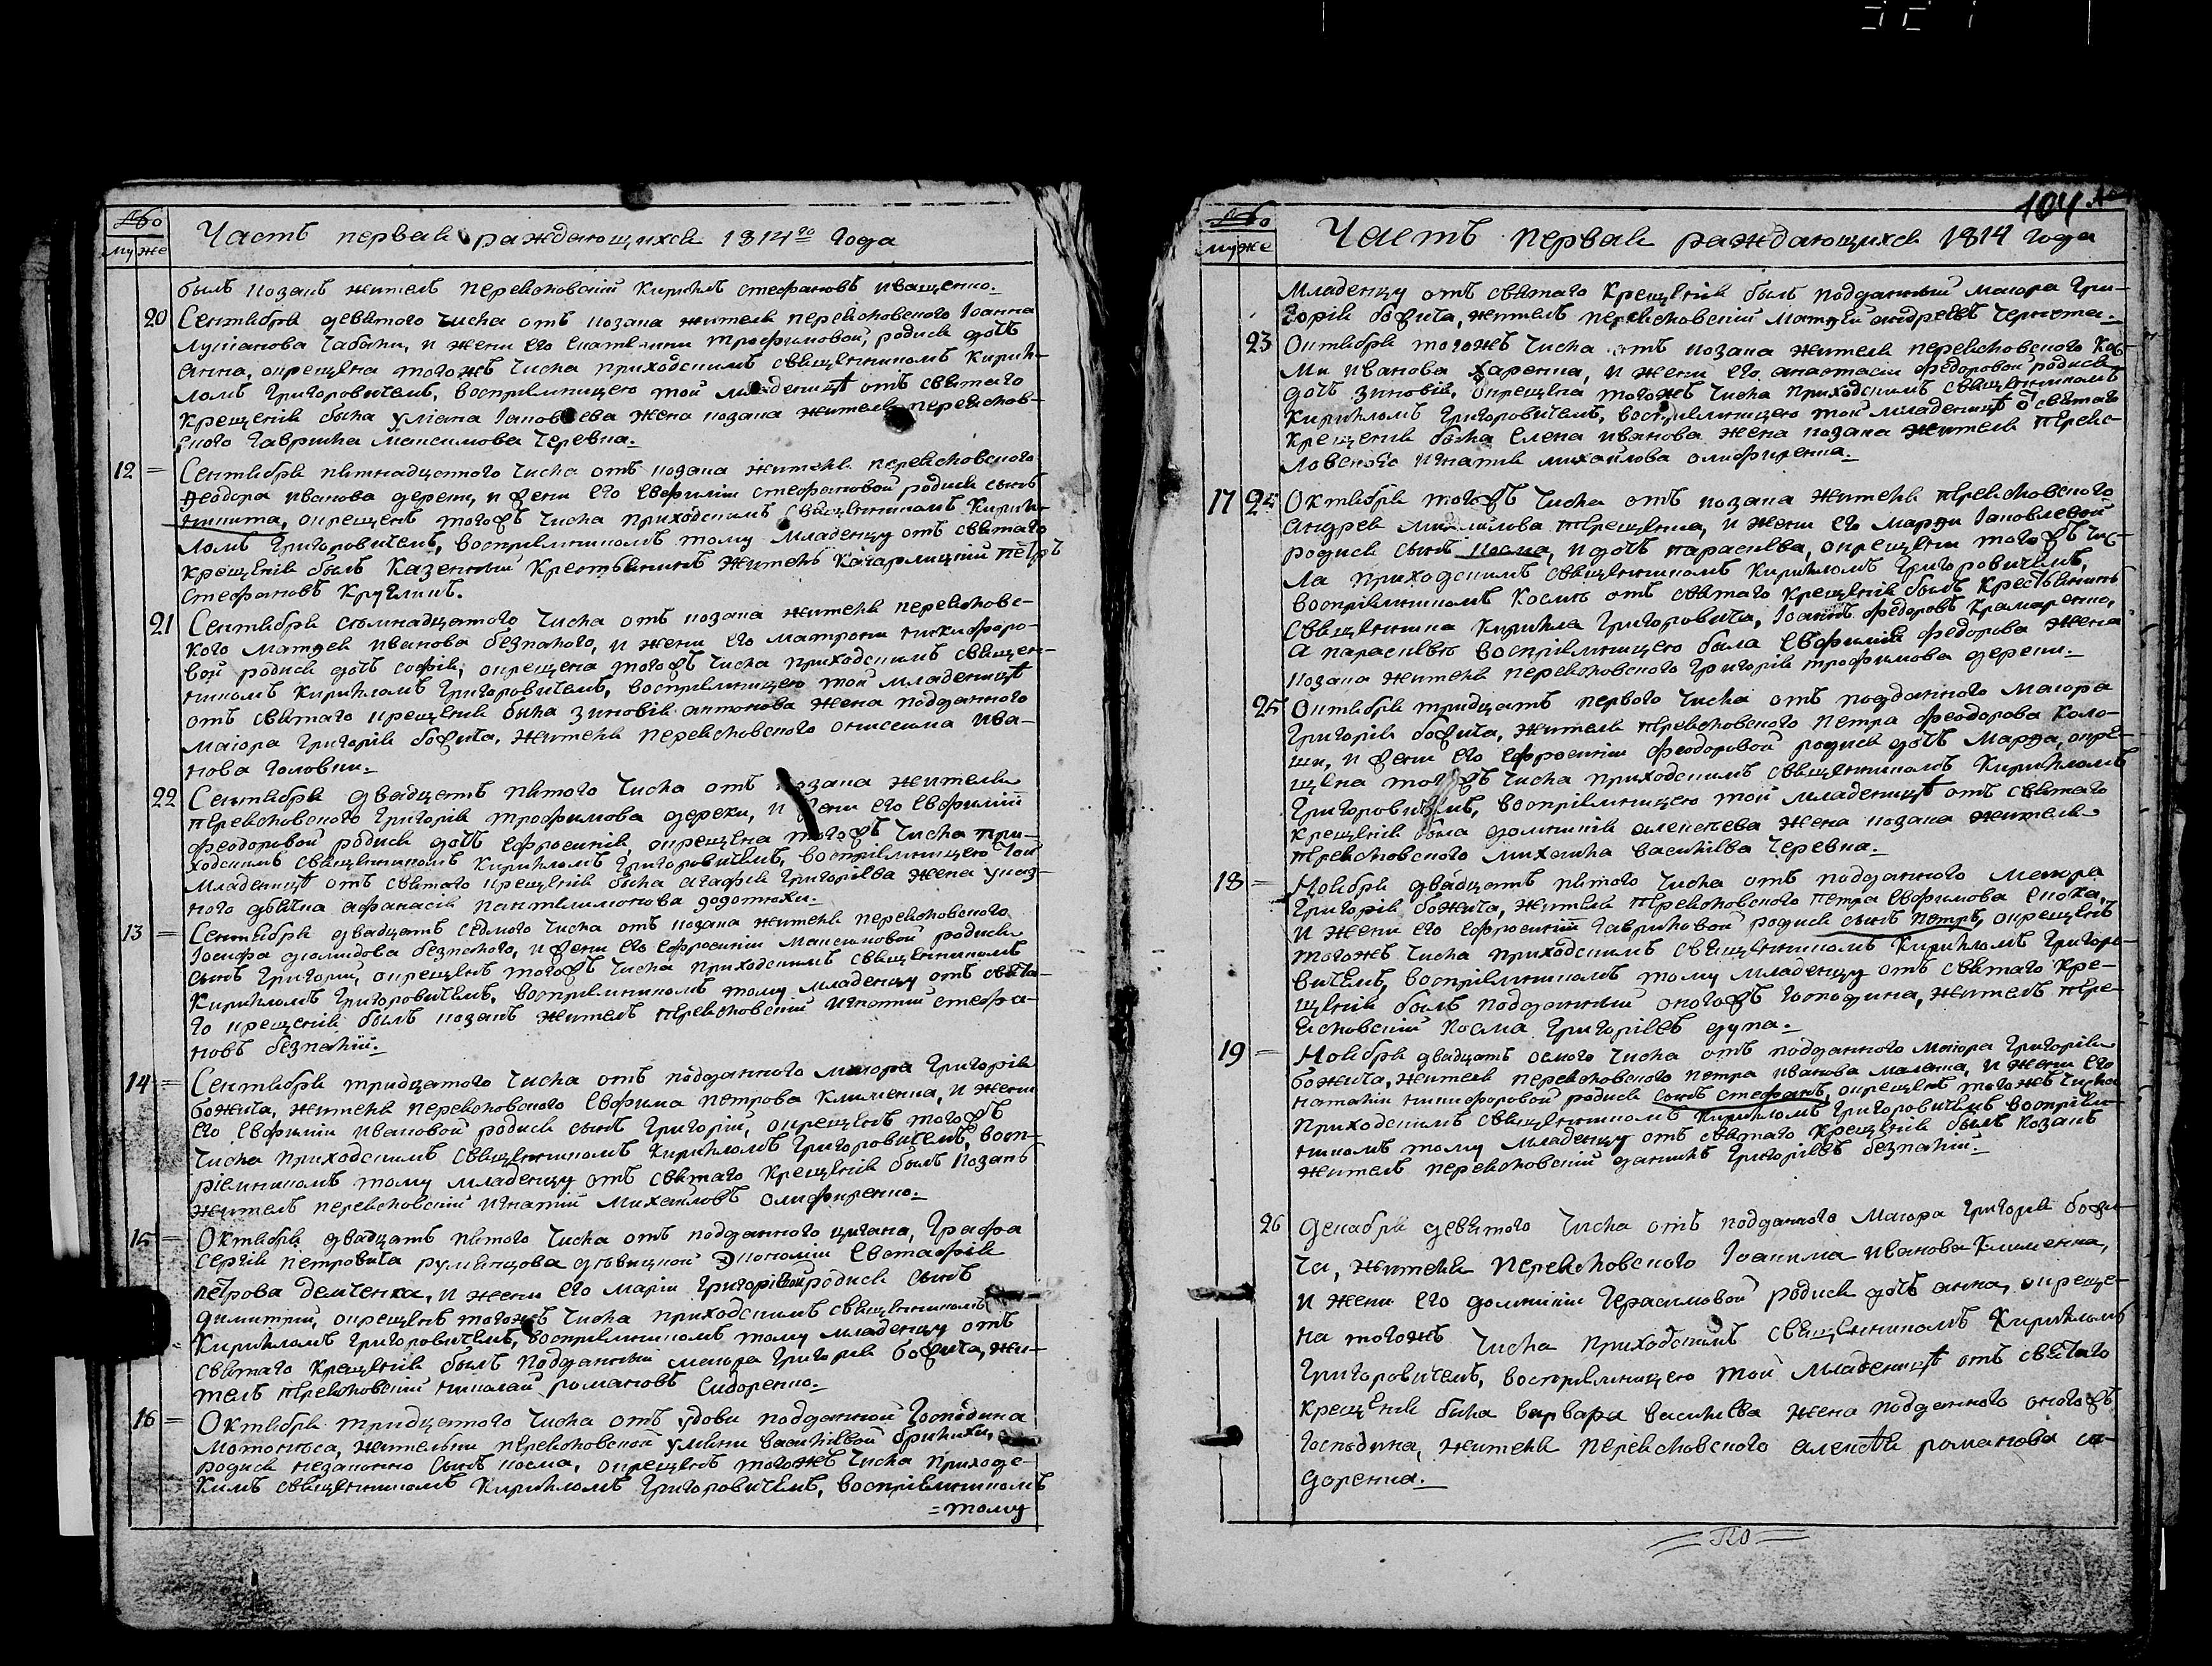 Часть первая раждающихся 1814го года
му же
былъ козакъ житель переясловскій Кирилъ стефановъ иващенко.
20 Сентября девятого числа отъ козака жителя переясловского Іоанна
Лукіанова Чабана, и жени его Екатерини трофимовой, родися дочь
анна, окрещена тогожъ числа приходскимъ священникомъ Кирил-
ломъ Григоровичемъ, воспріемницею той младеницѣ отъ святаго
крещенія была уліана жена козака жителя переяслов-
ского Гаврила Максимова Черевка.
12 = Сентября пятнадцатого числа отъ козака жителя переясловского
Феодора иванова дереки, и жени его Евфиміи стефановой родися сынъ
никита, окрещенъ тогожъ числа приходскимъ священникомъ Кирил-
ломъ Григоровичемъ, воспріемникомъ тому младенцу отъ святаго
крещенія былъ Казенный крестьянинъ житель Кагарлицкий петръ
стефановъ Кругликъ.
21 Сентября семнадцатого числа отъ козака жителя переясловс-
кого Матфея иванова безпалого, и жени его матрони никифоро-
вой родися дочь софія, окрещена тогожъ числа приходскимъ священ-
никомъ Кирилломъ Григоровичемъ, воспріемницею той младеницѣ
отъ святаго крещенія была зиновія антонова жена подданного
маіора Григорія божича, жителя переясловского онисима ива-
нова головки.
22 Сентября двадцать пятого числа отъ козака жителя
переясловского Григорія трофимова дереки, и жени его Евфиміи
феодоровой родися дочь Ефросинія, окрещена тогожъ числа при-
ходскимъ священникомъ Кирилломъ Григоровичемъ, воспріемницею той
младеницѣ отъ святаго крещенія была агафія Григоріева жена указ-
ного дьячка афанасія пантелимонова
13 = Сентября двадцать седмого числа отъ козака жителя переясловского
Іосифа демидова безпалого, и жени его Ефросиніи Максимовой родися
сынъ Григорій, окрещенъ тогожъ числа приходскимъ священникомъ
Кирилломъ Григоровичемъ, воспріемникомъ тому младенцу отъ свята-
го крещенія былъ козакъ житель переясловскій игнатий стефа-
новъ безпалий.
14 = Сентября тридцатого числа отъ подданного маіора Григорія
божича, жителя переясловского Евфима петрова клименка, и жени
его Евфиміи ивановой родися сынъ Григорій, окрещенъ тогожъ
числа приходскимъ священникомъ Кирилломъ Григоровичемъ, восп-
ріемникомъ тому младенцу отъ святаго крещенія былъ козакъ
житель переясловскій игнатий Михайловъ олифиренко.
15 = Октября двадцать пятого числа отъ подданного цигана, Графа
Сергія петровича румянцова Экономіи Евстафія
петрова демченка, и жени его Маріи Григоріевой родися сынъ
димитрий, окрещенъ тогожъ числа приходскимъ священникомъ
Кирилломъ Григоровичемъ, воспріемникомъ тому младенцу отъ
святаго крещенія былъ подданный маіора Григорія божича, жи-
тель переясловскій николай романовъ Сидоренко.
16 = Октября тридцатого числа отъ удови подданной Господина
жительки переясловской уляни васильевой
родися незаконно сынъ косма, окрещенъ тогожъ числа приходс-
кимъ священникомъ Кирилломъ Григоровичемъ, воспріемникомъ
= тому
104
Часть первая раждающихся 1814 года
му же
младенцу отъ святаго крещенія былъ подданный маіора Гри-
горія божича, житель переясловскій матфей андреевъ
23 Октября тогожъ числа отъ козака жителя переясловского Кос-
ми иванова харенка, и жени его анастасіи феодоровой родися
дочь зиновія, окрещена тогожъ числа приходскимъ священникомъ
Кирилломъ Григоровичемъ, воспріемницею той младеницѣ ѿ святаго
крещенія была Елена иванова жена козака жителя переяс-
ловского игнатія михайлова олифиренка.
17 24 Октября тогожъ числа отъ козака жителя переясловского
андрея терещенка, и жени его марфи Іаковлевой
родися сынъ косма, и дочь параскева, окрещени тогожъ чис-
ла приходскимъ священникомъ Кирилломъ Григоровичемъ,
воспріемникомъ косми отъ святаго крещенія былъ крестьянинъ
священника Кирилла Григоровича, Іоаннъ федоровъ Крамаренко,
а параскевѣ воспріемницею была Евфимія федорова жена
козака жителя переясловского Григорія трофимова дереки.
25 Октября тридцать первого числа отъ подданного маіора
Григорія божича, жителя переясловского петра феодорова коло-
ши, и жени его Ефросиніи феодоровой родися дочь марфа, окре-
щена тогожъ числа приходскимъ священникомъ Кирилломъ
Григоровичемъ, воспріемницею той младеницѣ отъ святаго
крещенія была домникія алексѣева жена козака жителя
переясловского михаила василіева черевка.
18 = Ноября двадцать пятого числа отъ подданного маіора
Григорія божича, жителя переясловского петра Евфимова
и жени его Ефросиніи Гавриловой родися сынъ петръ, окрещенъ
тогожъ числа приходскимъ священникомъ Кирилломъ Григоро-
вичемъ, воспріемникомъ тому младенцу отъ святаго кре-
щенія былъ подданный оногожъ господина, житель пере-
ясловскій косма Григоріевъ дупа.
19 = Ноября двадцать осмого числа отъ подданного маіора Григорія
божича, жителя переясловского петра иванова малаша, и жени его
наталіи никифоровой родися сынъ стефанъ, окрещенъ тогожъ числа
приходскимъ священникомъ Кирилломъ Григоровичемъ воспріем-
никомъ тому младенцу отъ святаго крещенія былъ козакъ
житель переясловскій даниилъ Григоріевъ безпалий.
26 Декабря девятого числа отъ подданного маіора Григорія божи-
ча, жителя переясловского Іоакима иванова клименка,
и жени его домникіи Герасимовой родися дочь анна, окреще-
на тогожъ числа приходскимъ священникомъ Кирилломъ
Григоровичемъ, воспріемницею той младеницѣ отъ святаго
крещенія была варвара василіева жена подданного оногожъ
господина, жителя переясловского алексѣя романова си-
доренка.
= По =